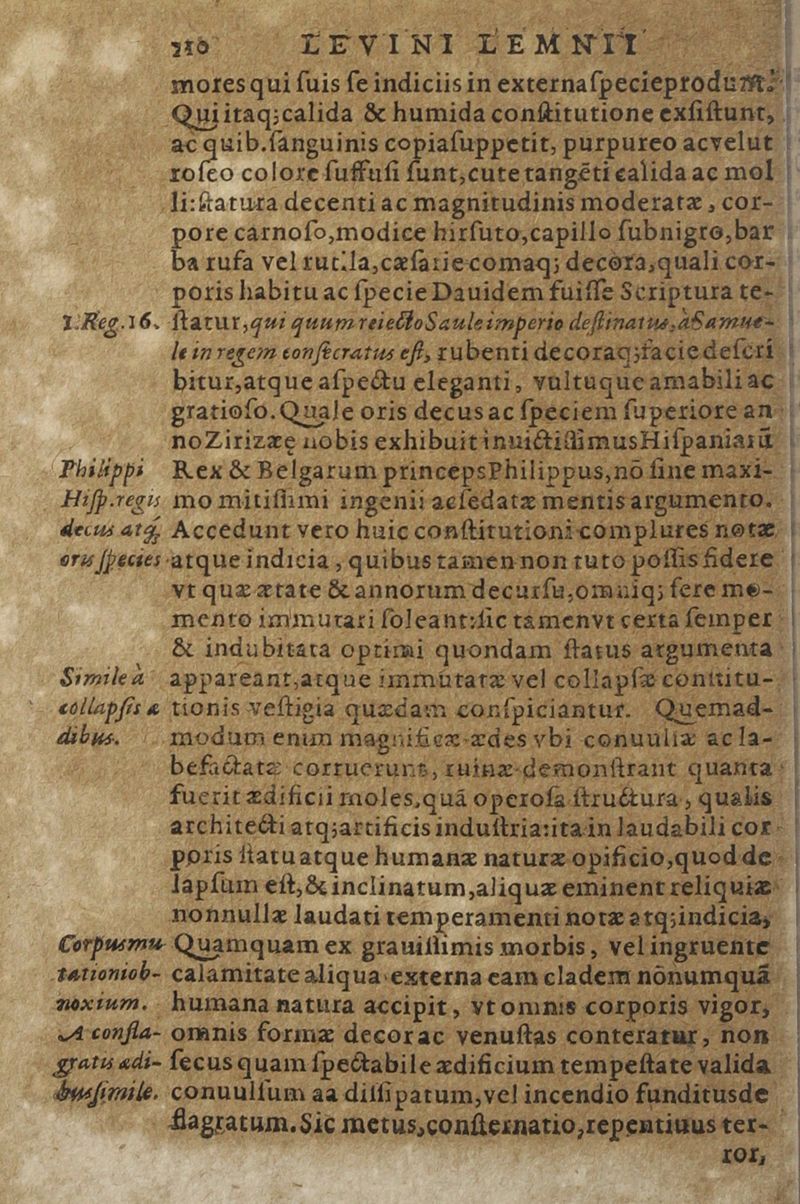 LEVINI LEMNII
mores qui suis se indiciis in externa specie produnt.
Qui itaq; calida & humida constitutione exsistunt,
ac quib. sanguinis copia suppetit, purpureo ac velut
roseo colore suffusi sunt, cute tangēti calida ac mol
li: statura decenti ac magnitudinis moderatæ, cor-
pore carnoso, modice hirsuto, capillo subnigro, bar
ba rufa vel rutila, cæsarie comaq; decora, quali cor-
poris habitu ac specie Dauidem fuisse Scriptura te-
1. Reg. 16. statur, qui quum reiecto Saule imperio destinatus, à Samue-
le in regem consecratus est, rubenti decoraq; facie descri
bitur, atque aspectu eleganti, vultuque amabili ac
gratioso. Quale oris decus ac speciem superiore an-
no Zirizææ nobis exhibuit inuictissimus Hispaniarū
Philippi Rex & Belgarum princeps Philippus, nō sine maxi-
Hisp. regis mo mitissimi ingenii ac sedatæ mentis argumento.
decus atq; Accedunt vero huic constitutioni complures notæ
oris species atque indicia, quibus tamen non tuto possis fidere
vt quæ ætate & annorum decursu, omniq; fere mo-
mento immutari soleant: sic tamen vt certa semper
& indubitata optimi quondam status argumenta
Simile à appareant, atque immutatæ vel collapsæ constitu-
collapsis æ tionis vestigia quædam conspiciantur. Quemad-
dibus. modum enim magnificæ ædes vbi conuulsæ ac la-
befactatæ corruerunt, ruinæ demonstrant quanta
fuerit ædificii moles, quā operosa structura, qualis
architecti atq; artificis industria: ita in laudabili cor-
poris statu atque humanæ naturæ opificio, quod de-
lapsum est, & inclinatum, aliquæ eminent reliquiæ
nonnullæ laudati temperamenti notæ atq; indicia,
Corpus mu- Quamquam ex grauissimis morbis, vel ingruente
tationi ob- calamitate aliqua externa eam cladem nōnumquā
noxium. humana natura accipit, vt omnis corporis vigor,
A confla- omnis formæ decor ac venustas conteratur, non
gratis ædi- secus quam spectabile ædificium tempestate valida
bus simile. conuulsum aa dissipatum, vel incendio funditus de
flagratum. Sic metus, consternatio, repentiuus ter-
ror,